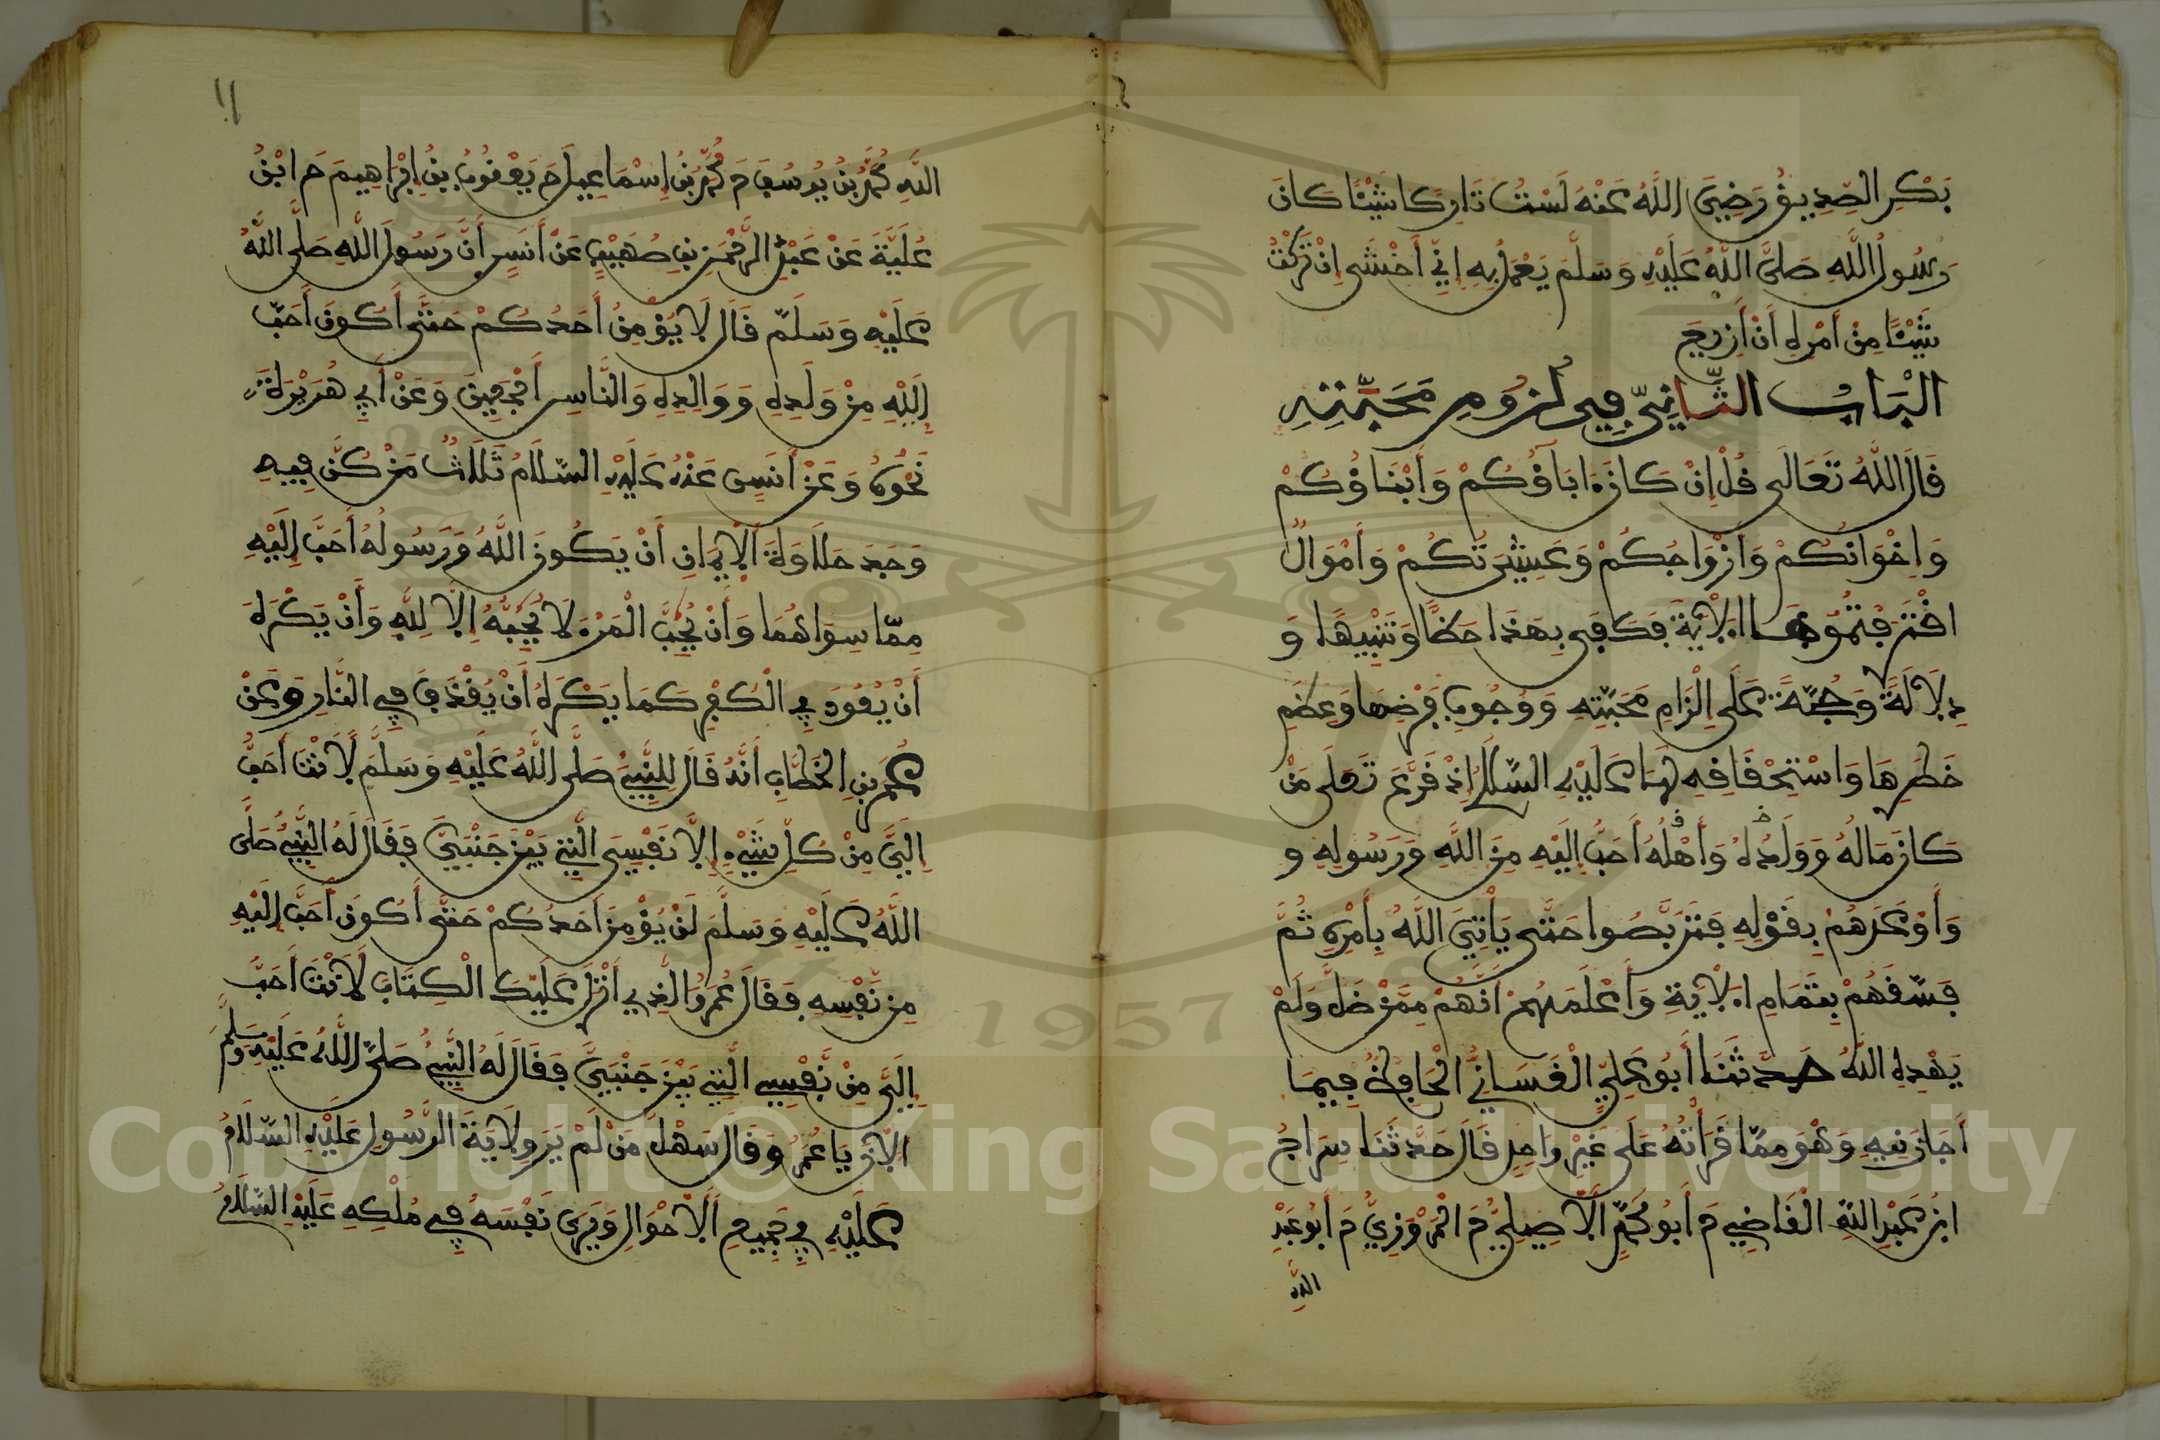 بَكْرٍ الصِّدِّيقُ رَضِيَ اللَّهُ عَنْهُ لَسْتُ تَارِكًا شَيْئًا كَانَ
رَسُولُ اللَّهِ صَلَّى اللَّهُ عَلَيْهِ وَسَلَّمَ يَعْمَلُ بِهِ إِنِّي أَخْشَى إِنْ تَرَكْتُ
شَيْئًا مِنْ أَمْرِهِ أَنْ أَزِيغَ
الْبَابُ الثَّانِي فِي لُزُومِ مَحَبَّتِهِ
قَالَ اللَّهُ تَعَالَى قُلْ إِنْ كَانَ ءَابَاؤُكُمْ وَأَبْنَاؤُكُمْ
وَإِخْوَانُكُمْ وَأَزْوَاجُكُمْ وَعَشِيرَتُكُمْ وَأَمْوَالٌ
اقْتَرَفْتُمُوهَا الْآيَةَ فَكَفَى بِهَذَا حَظًّا وَتَنْبِيهًا وَ
دِلَالَةً وَحُجَّةً عَلَى إِلْزَامِ مَحَبَّتِهِ وَوُجُوبِ فَرْضِهَا وَعِظَمِ
خَطَرِهَا وَاسْتِحْقَاقِهِ لَهَا عَلَيْهِ السَّلَامُ إِذْ قَرَّعَ تَعَلَى مَنْ
كَانَ مَالُهُ وَوَلَدُهُ وَأَهْلُهُ أَحَبُّ إِلَيْهِ مِنَ اللَّهِ وَرَسُولِهِ وَ
وَأَوْعَدَهُمْ بِقَوْلِهِ فَتَرَبَّصُوا حَتَّى يَأْتِيَ اللَّهُ بِأَمْرِهِ ثُمَّ
فَسَّقَهُمْ بِتَمَامِ الْآيَةِ وَأَعْلَمَهُمْ أَنَّهُمْ مِمَّنْ ضَلَّ وَلَمْ
يَهْدِهِ اللَّهُ حَدَّثَنَا أَبُو عَلِيٍّ الْغَسَّانِيُّ الْحَافِظُ فِيمَا
أَجَازَنِيهِ وَهْوَ مِمَّا قَرَأْتُهُ عَلَى غَيْرِ وَاحِدٍ قَالَ حَدَّثَنَا سِرَاجُ
ابْنُ عَبْدِ اللَّهِ الْقَاضِي حَ أَبُو مُحَمَّدٍ الْأَصِيلِيُّ حَ الْمَرْوَزِيُّ حَ أَبُو عَبْدِ
اللَّهِ
١١
اللَّهِ مُحَمَّدُ بْنُ يُوسُفَ حَ مُحَمَّدُ بْنُ إِسْمَاعِيلَ حَ يَعْقُوبُ بْنُ إِبْرَاهِيمَ حَ ابْنُ
عُلَيَّةَ عَنْ عَبْدِ الرَّحْمَنِ بْنِ صُهَيْبٍ عَنْ أَنَسٍ أَنَّ رَسُولَ اللَّهِ صَلَّى اللَّهُ
عَلَيْهِ وَسَلَّمَ قَالَ لَا يُؤْمِنُ أَحَدُكُمْ حَتَّى أَكُونَ أَحَبَّ
إِلَيْهِ مِنْ وَلَدِهِ وَوَالِدِهِ وَالنَّاسِ أَجْمَعِينَ وَعَنْ أَبِي هُرَيْرَةَ
نَحْوُهُ وَعَنْ أَنَسٍ عَنْهُ عَلَيْهِ السَّلَامُ ثَلَاثٌ مَنْ كُنَّ فِيهِ
وَجَدَ حَلَاوَةَ الْإِيمَانِ أَنْ يَكُونَ اللَّهُ وَرَسُولُهُ أَحَبَّ إِلَيْهِ
مِمَّا سِوَاهُمَا وَأَنْ يُحِبَّ الْمَرْءَ لَا يُحِبُّهُ إِلَّا لِلَّهِ وَأَنْ يَكْرَهَ
أَنْ يَعُودَ فِي الْكُفْرِ كَمَا يَكْرَهُ أَنْ يُقْذَفَ فِي النَّارِ وَعَنْ
عُمَرَ بْنِ الْخَطَّابِ أَنَّهُ قَالَ لِلنَّبِيِّ صَلَّى اللَّهُ عَلَيْهِ وَسَلَّمَ لَأَنْتَ أَحَبُّ
إِلَيَّ مِنْ كُلِّ شَيْءٍ إِلَّا نَفْسِي الَّتِي بَيْنَ جَنْبَيَّ فَقَالَ لَهُ النَّبِيُّ صَلَّى
اللَّهُ عَلَيْهِ وَسَلَّمَ لَنْ يُؤْمِنَ أَحَدُكُمْ حَتَّى أَكُونَ أَحَبَّ إِلَيْهِ
مِنْ نَفْسِهِ فَقَالَ عُمَرُ وَالَّذِي أَنْزَلَ عَلَيْكَ الْكِتَابَ لَأَنْتَ أَحَبُّ
إِلَيَّ مِنْ نَفْسِي الَّتِي بَيْنَ جَنْبَيَّ فَقَالَ لَهُ النَّبِيُّ صَلَّى اللَّهُ عَلَيْهِ وَسَلَّمَ
الْآنَ يَا عُمَرُ وَقَالَ سَهْلٌ مَنْ لَمْ يَرَ وِلَايَةَ الرَّسُولِ عَلَيْهِ السَّلَامُ
عَلَيْهِ فِي جَمِيعِ الْأَحْوَالِ وَيَرَى نَفْسَهُ فِي مُلْكِهِ عَلَيْهِ السَّلَامُ
1957
Copyright © King Saud University